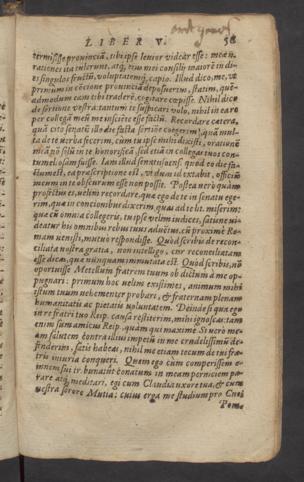 LIBER V. 58
termisisse prouinciā, tibi ipse leuior videar esse: meæ n.
rationes ita tulerunt, atq; eius mei consilij maiorē in di-
es singulos fructū, voluptatemq; capio. Illud dico, me, vt
primum in cōcione prouinciā deposuerim, statim, quē-
admodum eam tibi traderē, cogitare cœpisse. Nihil dico
de sortione vestra: tantum te suspicari volo, nihil in ea re
per collegā meū me insciēte esse factū. Recordare cætera,
quā cito senatū illo die facta sortiōe coëgerim, quā mul-
ta de te verba fecerim, cum tu ipse mihi dixisti, orationē
meā nō solū in te honorificā, sed etiā in collegas tuos con-
tumeliosam fuisse. Iam illud senatusconf. quod eo die fa-
ctum est, ea præscriptione est, vt dum id extabit, officiū
meum in te obscurum esse non possit. Postea verò quàm
profectus es, velim recordere, quæ ego de te in senatu ege-
rim, quæ in concionibus dixerim, quas ad te lit. miserim:
quæ cū omnia collegeris, tu ipse velim iudices, satisne vi-
deatur his omnibus rebus tuus aduētus, cū proximè Ro-
mam venisti, mutuo respondisse. Quòd scribis de recon-
ciliata vestra gratia, non intelligo, cur reconciliatam
esse dicas, quæ nunquam immutata est. Quòd scribis, nō
oportuisse Metellum fratrem tuum ob dictum à me op-
pugnari: primum hoc velim existimes, animum mihi
istum tuum vehementer probari, & fraternam plenam
humanitatis ac pietatis voluntatem. Deinde si qua ego
in re fratri tuo Reip. causa restiterim, mihi ignoscas: tam
enim sum amicus Reip. quam qui maximè. Si verò me-
am salutem contra illius impetū in me crudelissimū de-
fenderim, satis habeas, nihil me etiam tecum de tui fra-
tris iniuria conqueri. Quem ego cùm comperissem o-
mnem sui tr. bunatus conatum in meam perniciem pa-
rare atq; meditari, egi cum Claudia vxore tua, & cum
vestra sorore Mutia: cuius erga me studium pro Cnei
Pom-